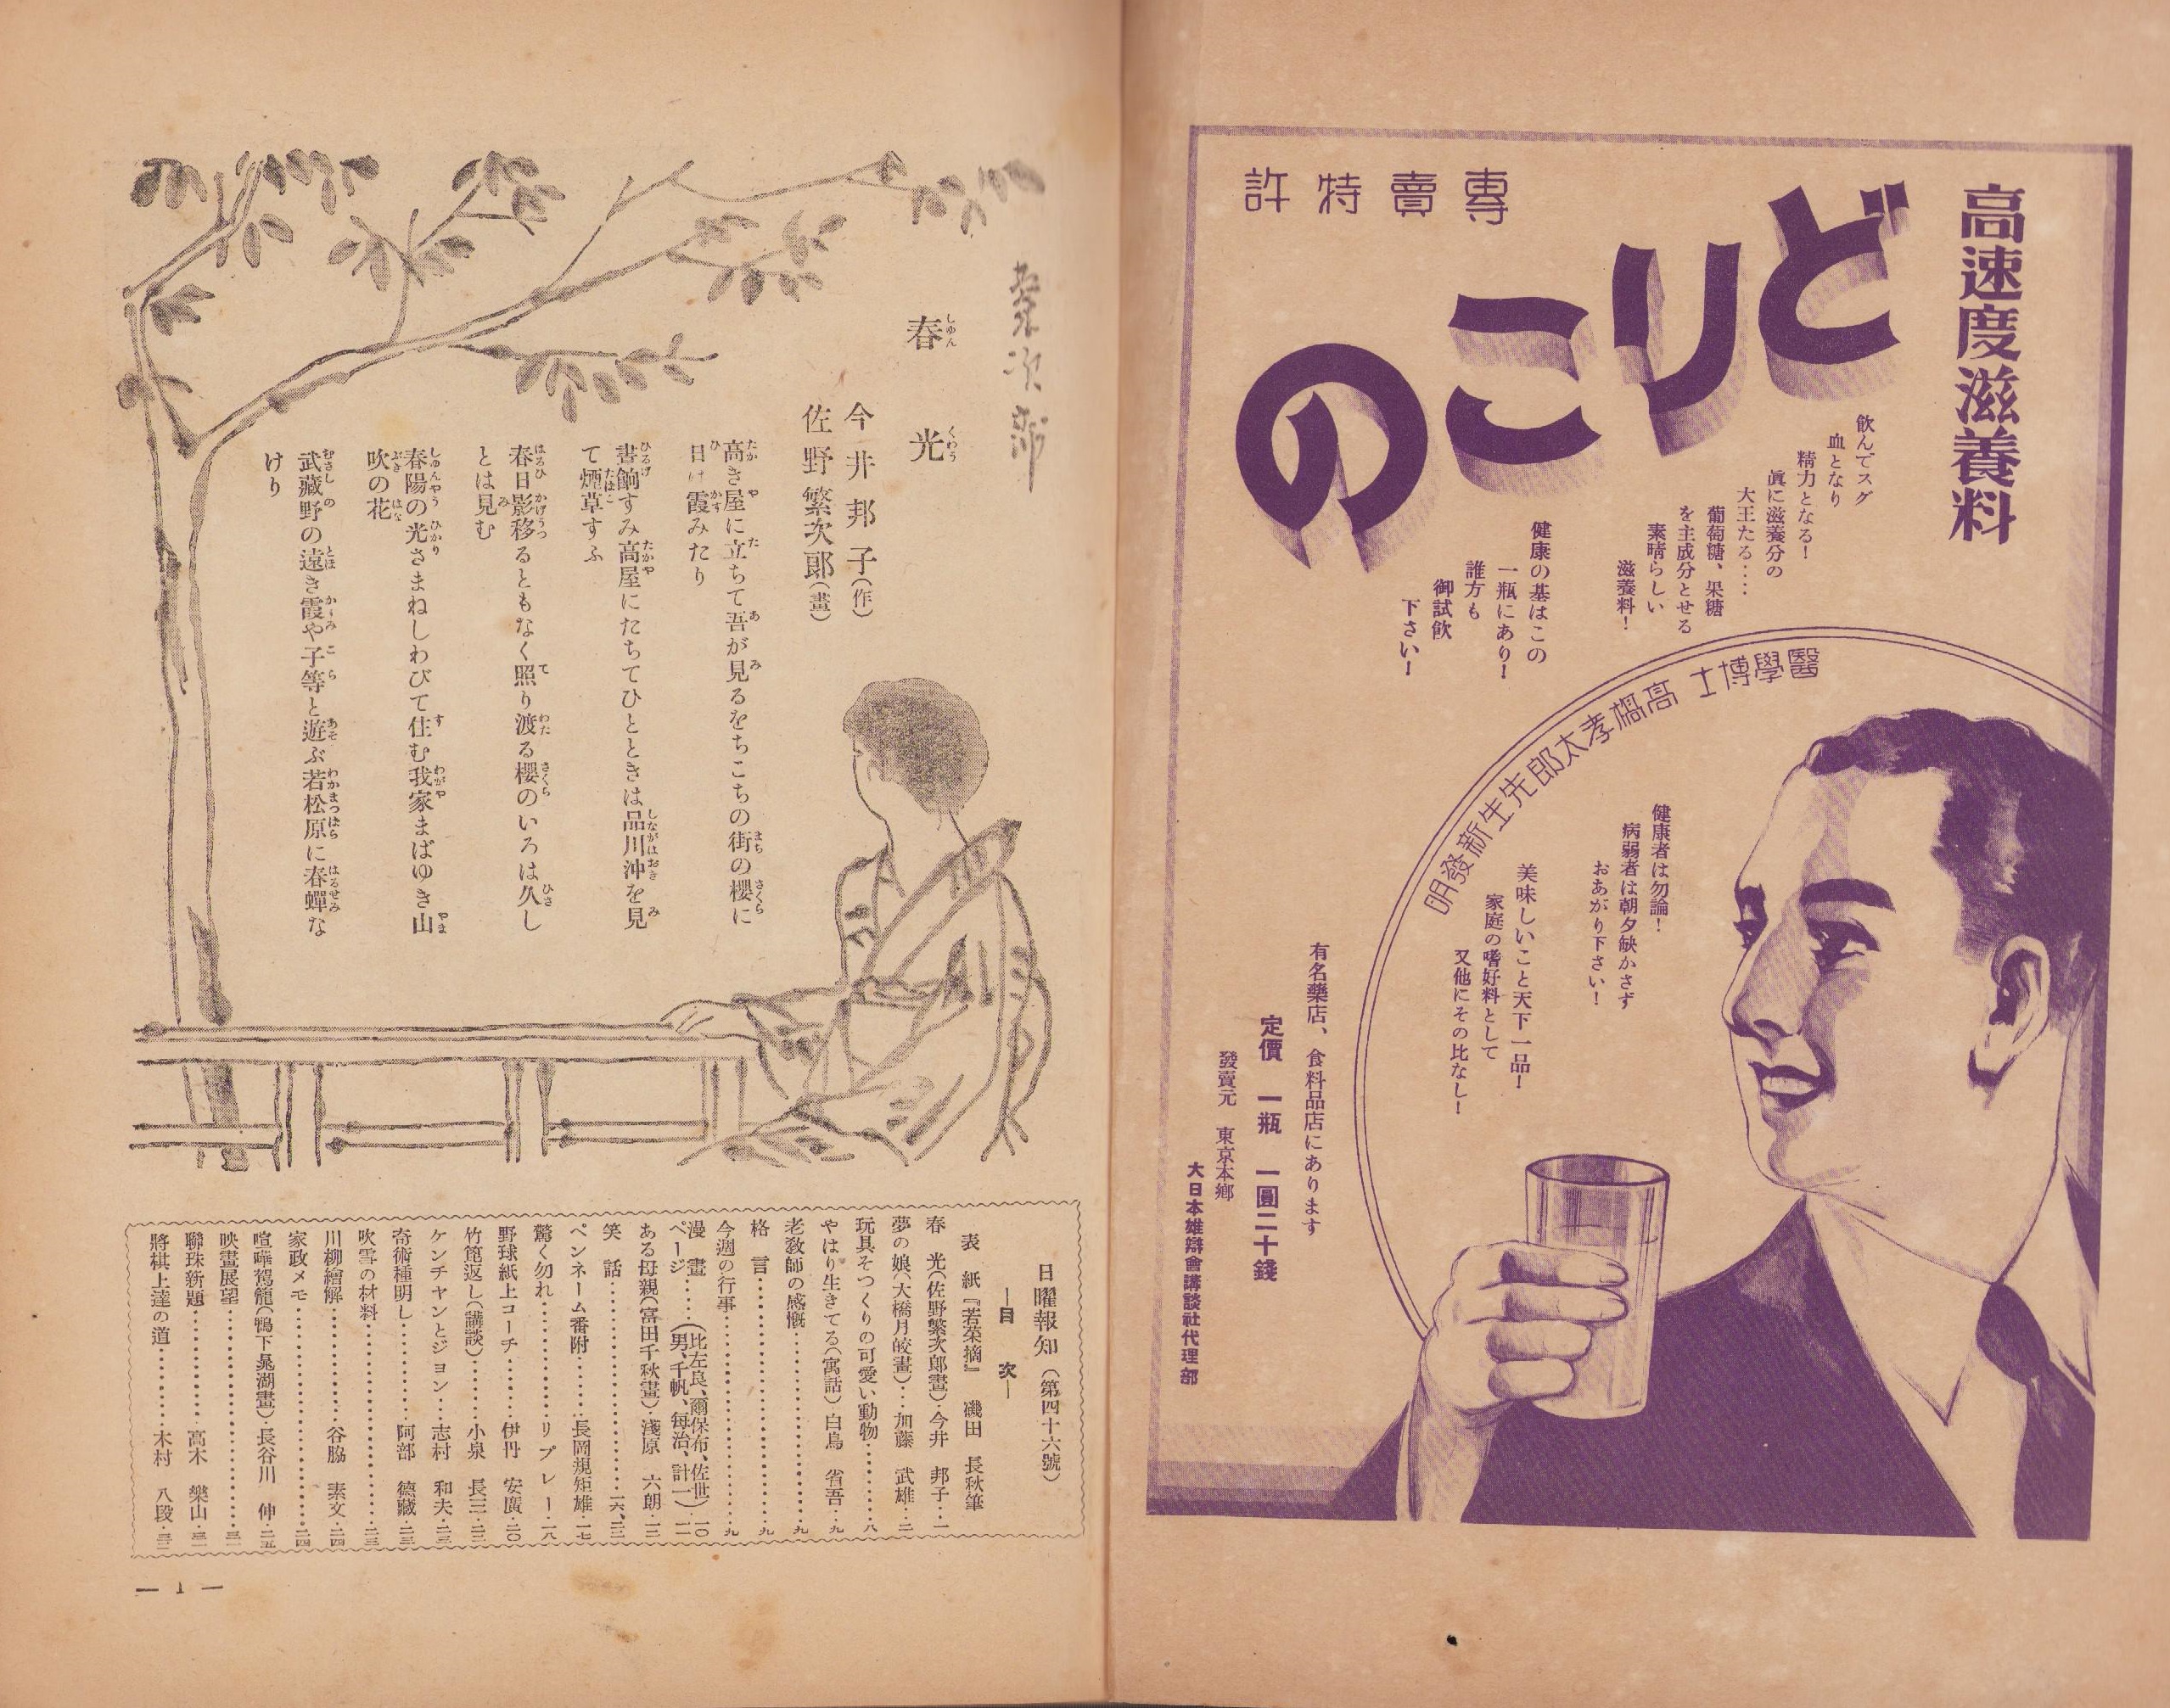 高速度滋養料
專賣特許
どりこの
飲んでスグ
血となり
精力となる！
眞に滋養分の
大王たる‥‥
葡萄糖、果糖
を主成分とせる
素晴らしい
滋養料！
健康の基はこの
一瓶にあり！
誰方も
御試飲
下さい！
醫學博士 高橋孝太郎先生新發明
健康者は勿論！
病弱者は朝夕缺かさず
おあがり下さい！
美味しいこと天下一品！
家庭の嗜好料として
又他にその比なし！
有名藥店、食料品店にあります
定價 一瓶 一圓二十錢
發賣元 東京本鄕
大日本雄辯會講談社代理部
繁次郎
春光
今井邦子（作）
佐野繁次郞（畫）
高き屋に立ちて吾が見るをちこちの街の櫻に
日は霞みたり
晝餉すみ高屋にたちてひとときは品川沖を見
て煙草すふ
春日影移るともなく照り渡る櫻のいろは久し
とは見む
春陽の光さまねしわびて住む我家まばゆき山
吹の花
武藏野の遠き霞や子等と遊ぶ若松原に春蟬な
けり
日曜報知（第四十六號）
―目 次―
表 紙『若菜摘』 磯田 長秋筆
春 光（佐野繁次郞畫）‥今井 邦子‥一
夢の娘（大橋月皎畫）‥‥加藤 武雄‥二
玩具そつくりの可愛い動物‥‥‥‥八
やはり生きてる（寓話）‥白鳥 省吾‥九
老敎師の感慨‥‥‥‥九
格 言‥‥‥‥九
今週の行事‥‥‥‥九
漫 畫
ページ‥‥（比左良、爾保布、佐世
男、千帆、每治、計一）‥一〇 一一
ある母親（富田千秋畫）‥淺原 六朗‥一二
笑 話‥‥‥‥一六、三二
ペンネーム番附‥‥長岡規矩雄‥一七
驚く勿れ‥‥‥‥リプレー‥一八
野球紙上コーチ‥‥伊丹 安廣‥二〇
竹篦返し（講談）‥‥小泉 長三‥二三
ケンチヤンとジヨン‥‥志村 和夫‥二三
奇術種明し‥‥‥‥阿部 德藏‥二三
吹雪の材料‥‥‥‥二三
川柳繪解‥‥‥‥谷脇 素文‥二四
家政メモ‥‥‥‥二四
喧嘩駕籠（鴨下晁湖畫）‥長谷川 伸‥二五
映畫展望‥‥‥‥三一
聯珠新題‥‥‥‥高木 樂山‥三二
將棋上達の道‥‥‥‥木村 八段‥三二
― 1 ―